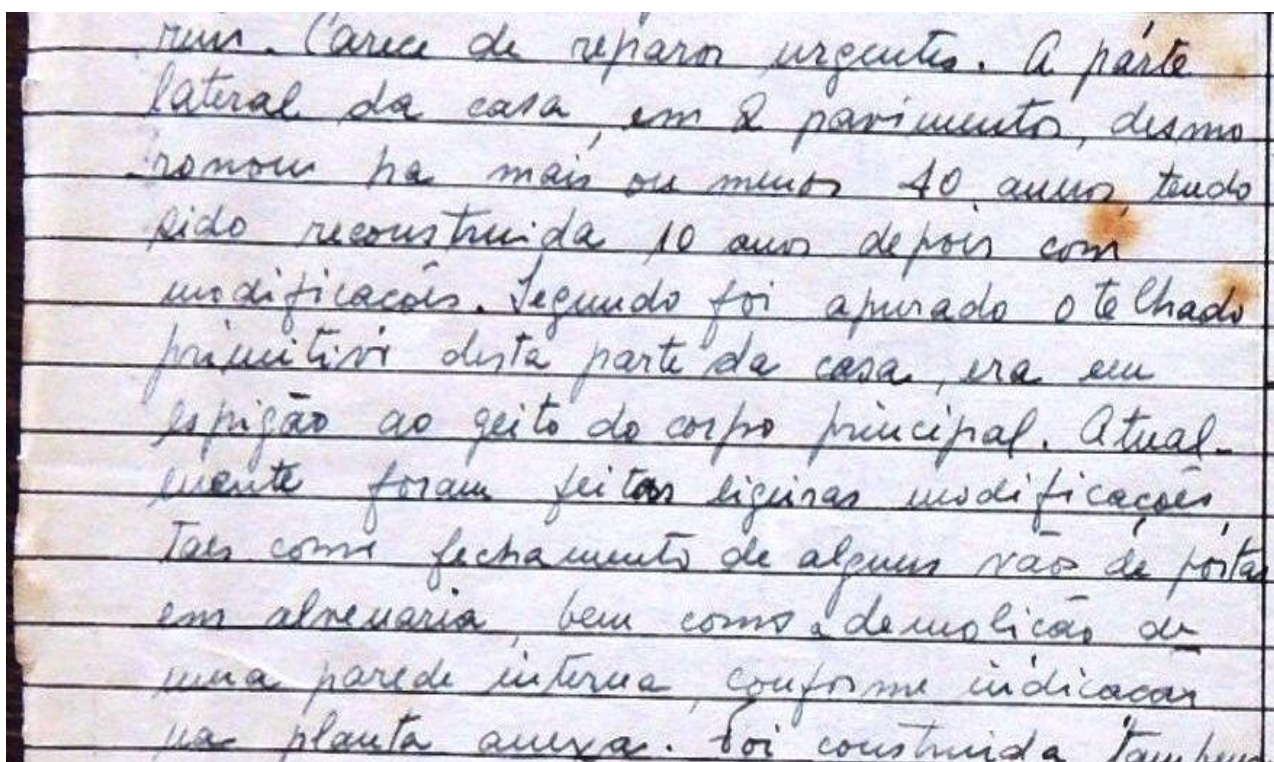 ruin. Carece de reparos urgentes. A parte
lateral da casa, em 2 pavimentos, desmo
ronou ha mais ou menos 40 annos, tendo
sido reconstruida 10 anos depois com
modificacões. Segundo foi apurado o telhado
primitivo desta parte da casa, era em
espigão ao geito do corpo principal. Atual-
mente foram feitas ligeiras modificações,
taes como fechamento de alguns vãos de portas
em alvenaria, bem como a demolicão de
uma parede interna, conforme indicacao
na planta anexa. Foi construida tambem